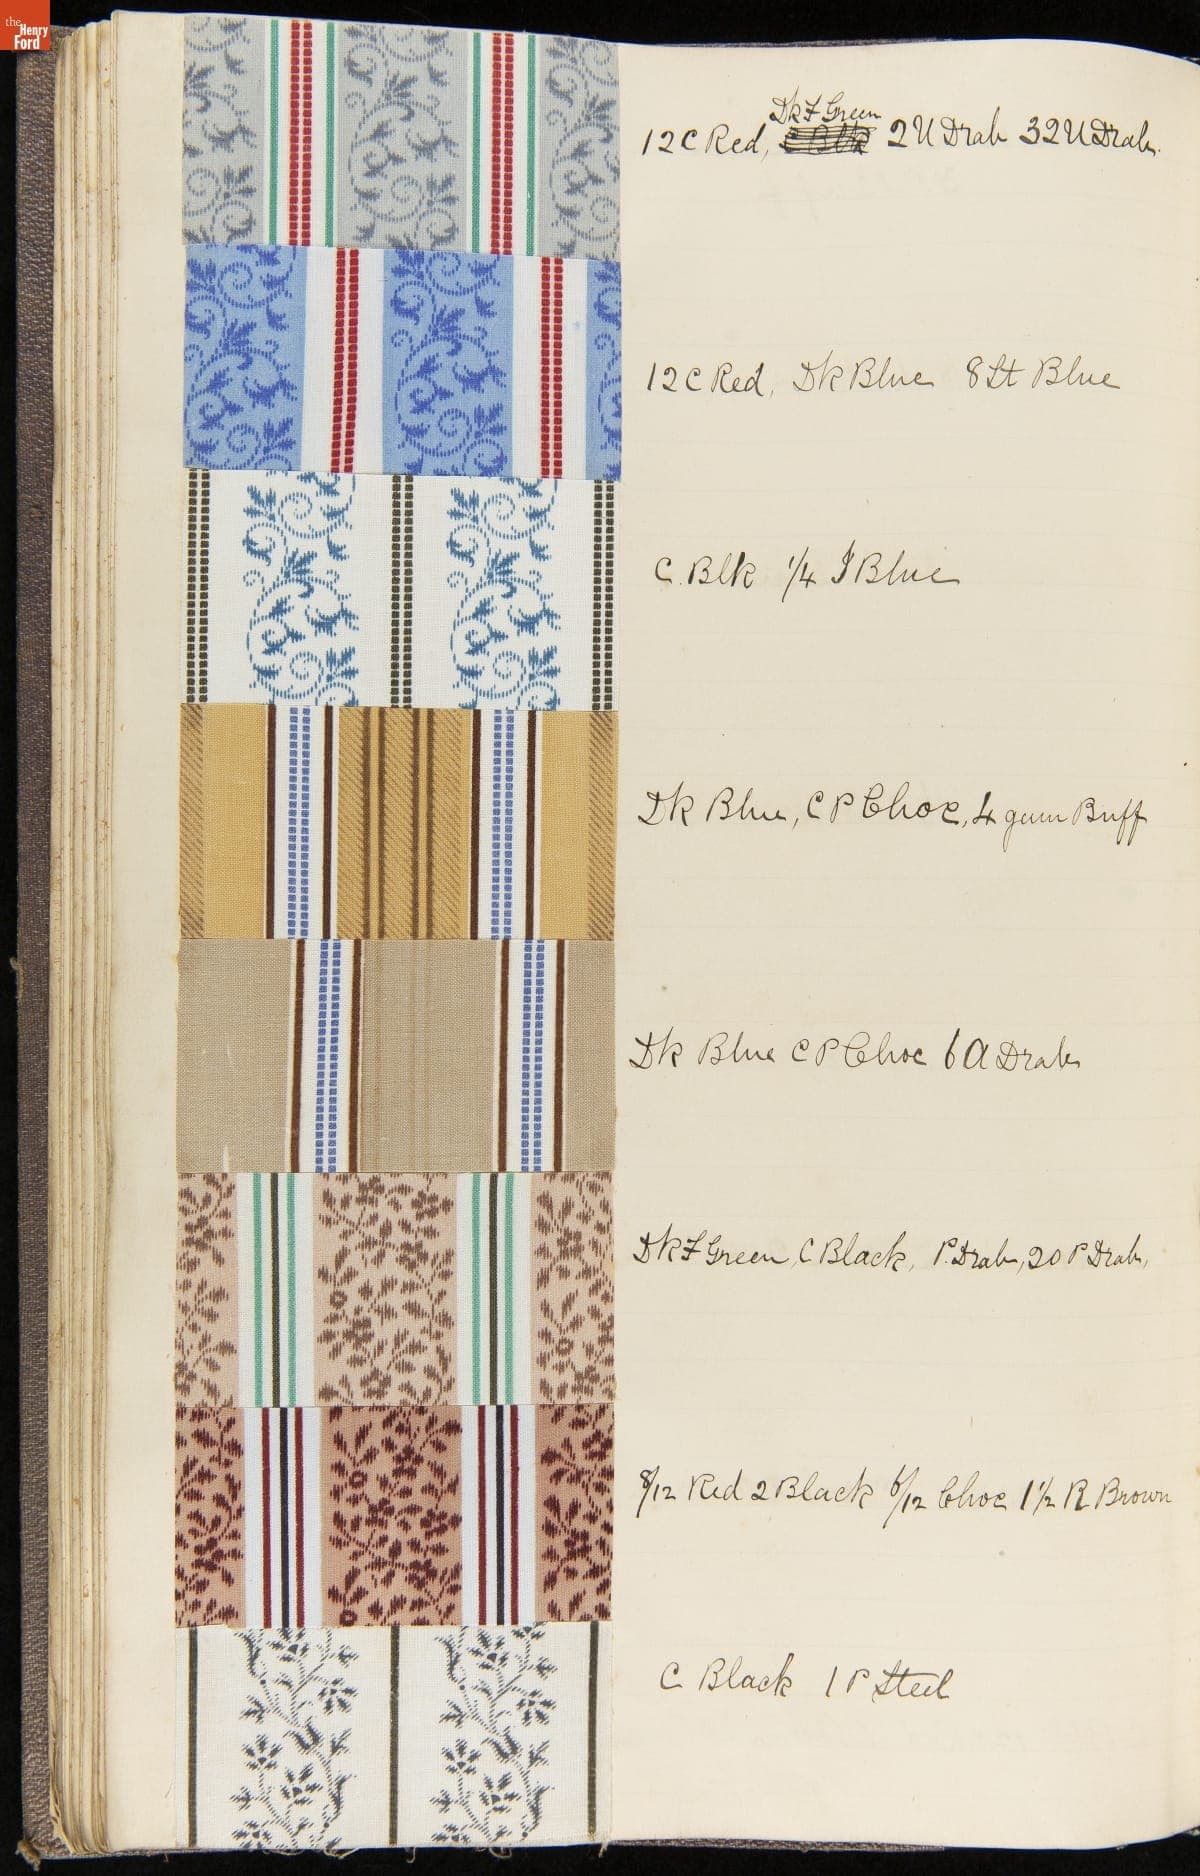 the
Henry
Ford
Dk F Green
12 C Red, C Blk 2 U Drab 32 U Drab.
12 C Red, Dk Blue 8 Lt Blue
C. Blk 1/4 I Blue
Dk Blue, C P Choc, 4 gum Buff
Dk Blue C P Choc 6 A Drab
Dk F Green, C Black, P. Drab, 20 P Drab,
8/12 Red 2 Black 6/12 Choc 1 1/2 R Brown
C Black 1 P Steel